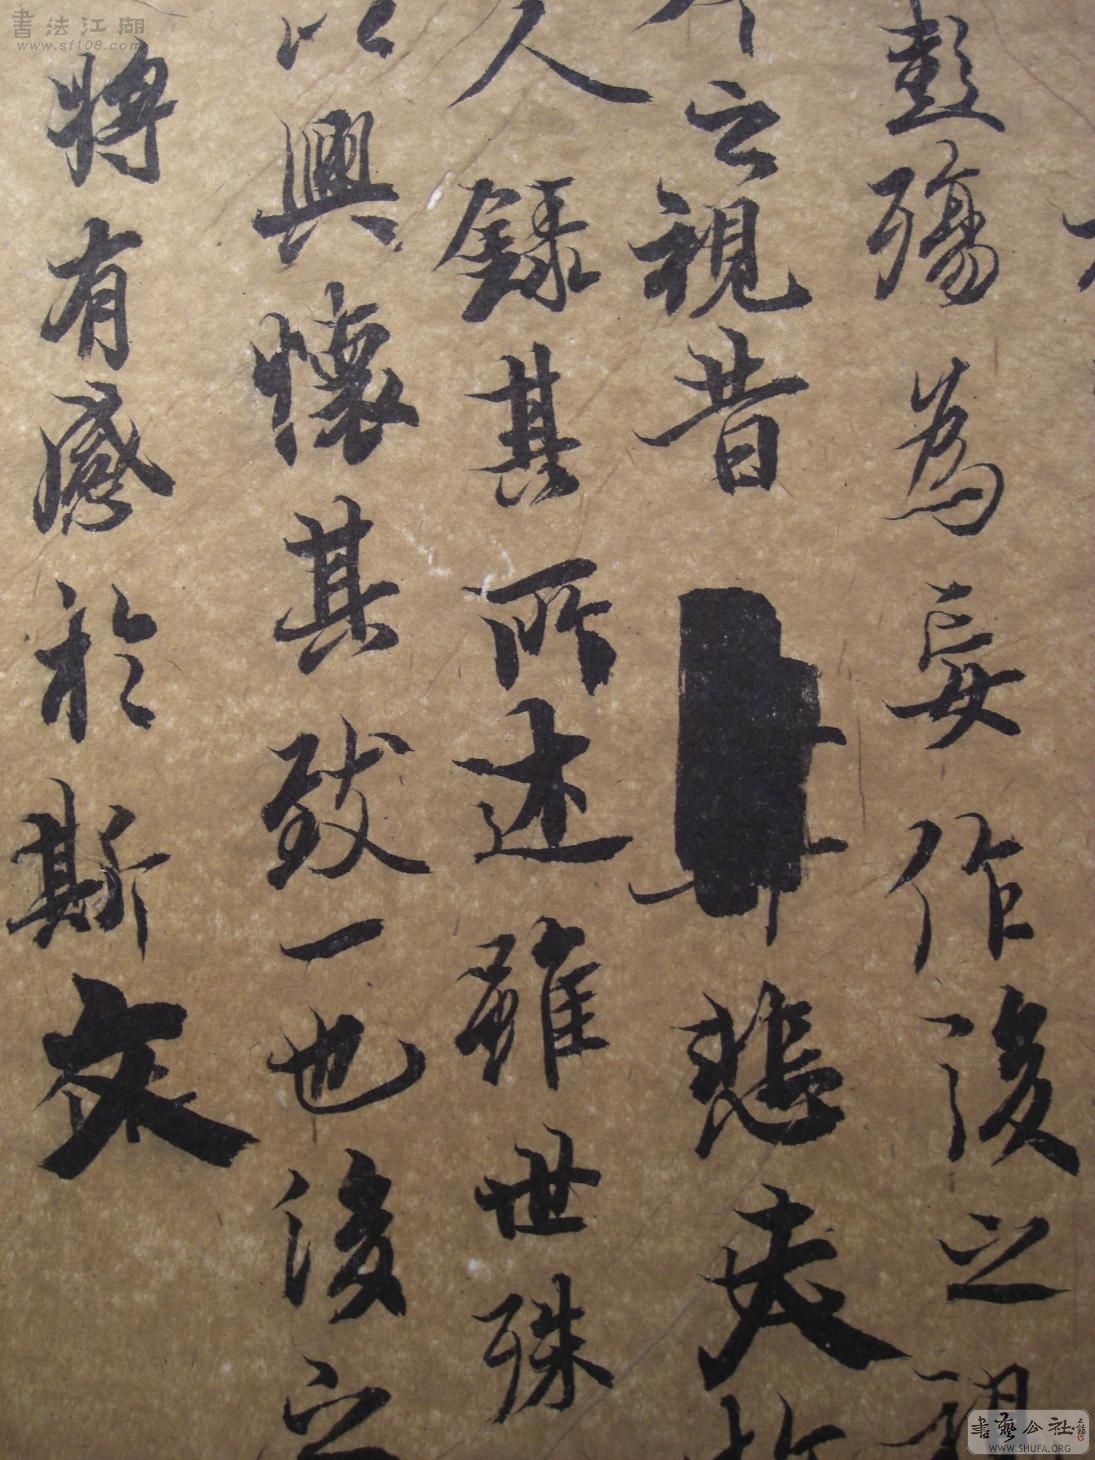 彭殤為妄作後之視
今之視昔悲夫故
人錄其所述雖世殊
以興懷其致一也後之
將有感於斯文
書法江湖
www.sf108.com
書藝公社
WWW.SHUFA.ORG